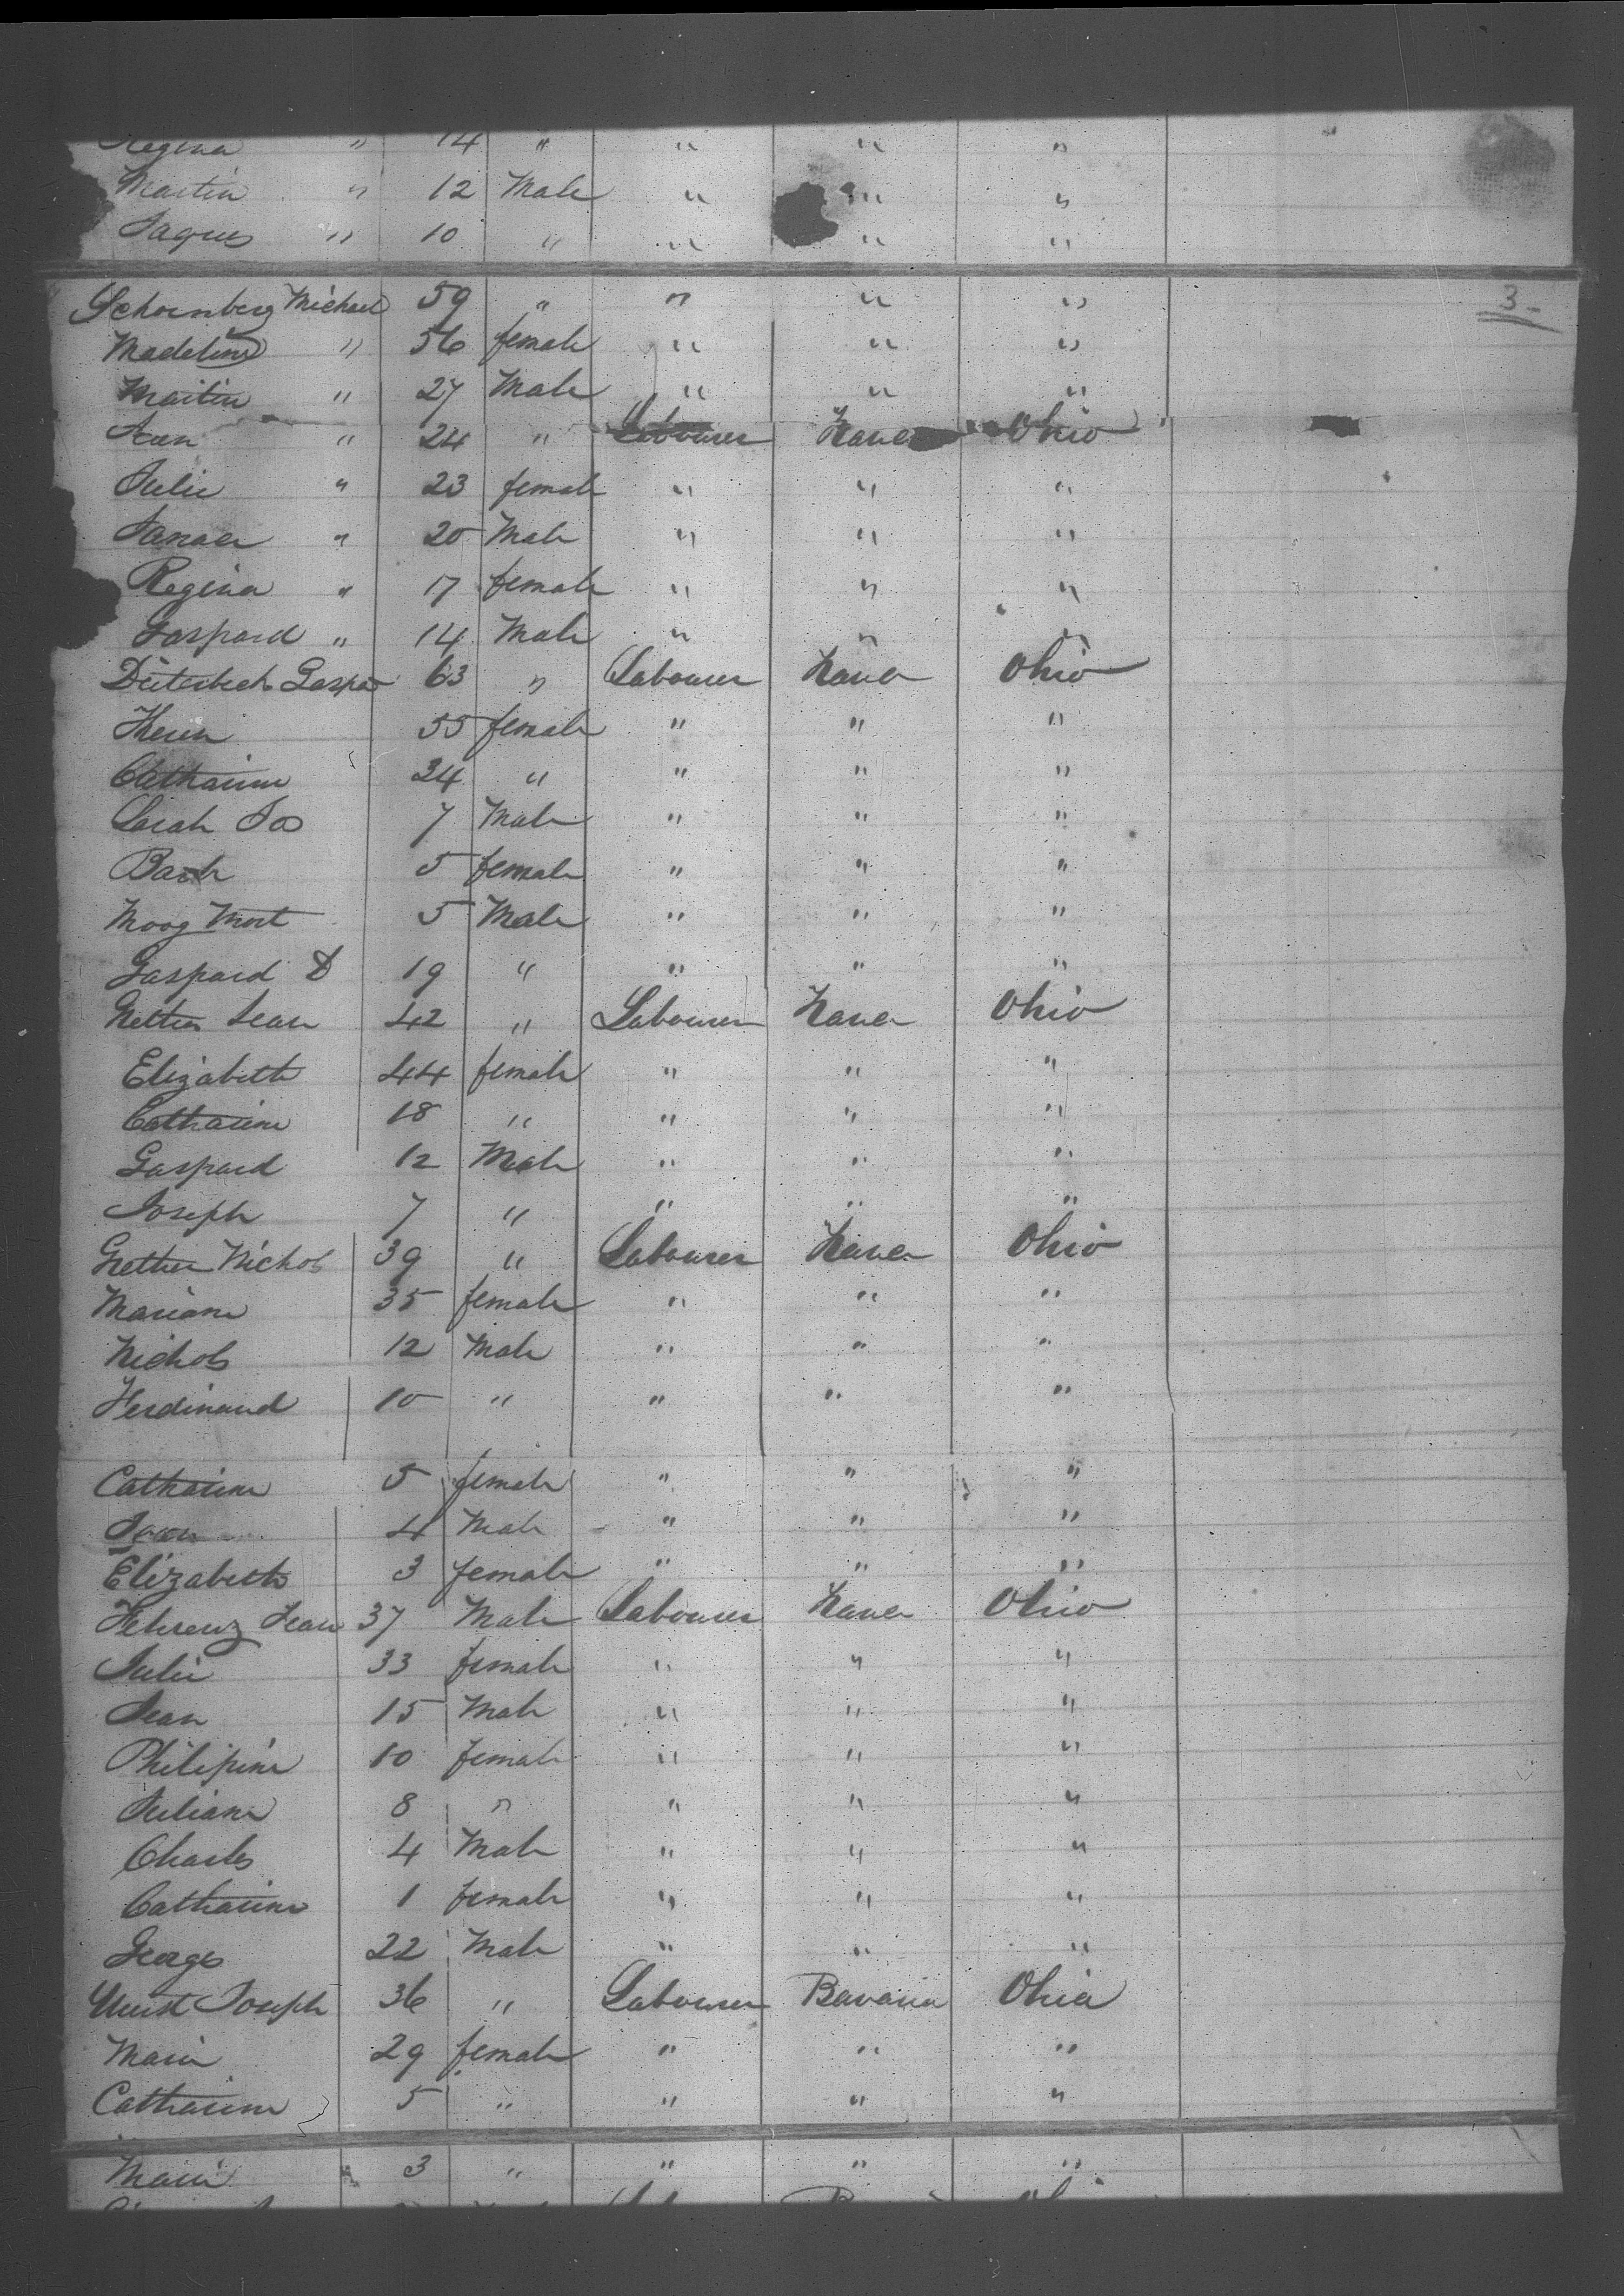 Regina " 14 " " " "
Martin " 12 Male " " "
Jaques " 10 " " " "
3-
Schoenberg Michael 59 " " " "
Madeline " 56 female " " "
Martin " 27 Male " " "
" 24 " Labourer Ohio
Julie " 23 female " " "
" 20 Male " " "
Regina " 17 female " " "
Gaspard " 14 Male " " "
Gaspar 63 " Labourer Ohio
55 female " " "
Catharine 34 " " " "
7 Male " " "
5 female " " "
Moog 5 Male " " "
Gaspard D 19 " " " "
Jean 42 " Labourer Ohio
Elizabeth 44 female " " "
Catharine 18 " " " "
Gaspard 12 Male " " "
Joseph 7 " " " "
Nichols 39 " Labourer Ohio
Mariane 35 female " " "
Nichols 12 Male " " "
Ferdinand 10 " " " "
Catharine 5 female " " "
Jean 4 Male " " "
Elizabeth 3 female " " "
Jean 37 Male Labourer Ohio
Julie 33 female " " "
Jean 15 Male " " "
Philipine 10 female " " "
Juliane 8 " " " "
Charles 4 Male " " "
Catharine 1 female " " "
George 22 Male " " "
Joseph 36 " Labourer Bavaria Ohio
Marie 29 female " " "
Catharine 5 " " " "
Marie 3 " " " "